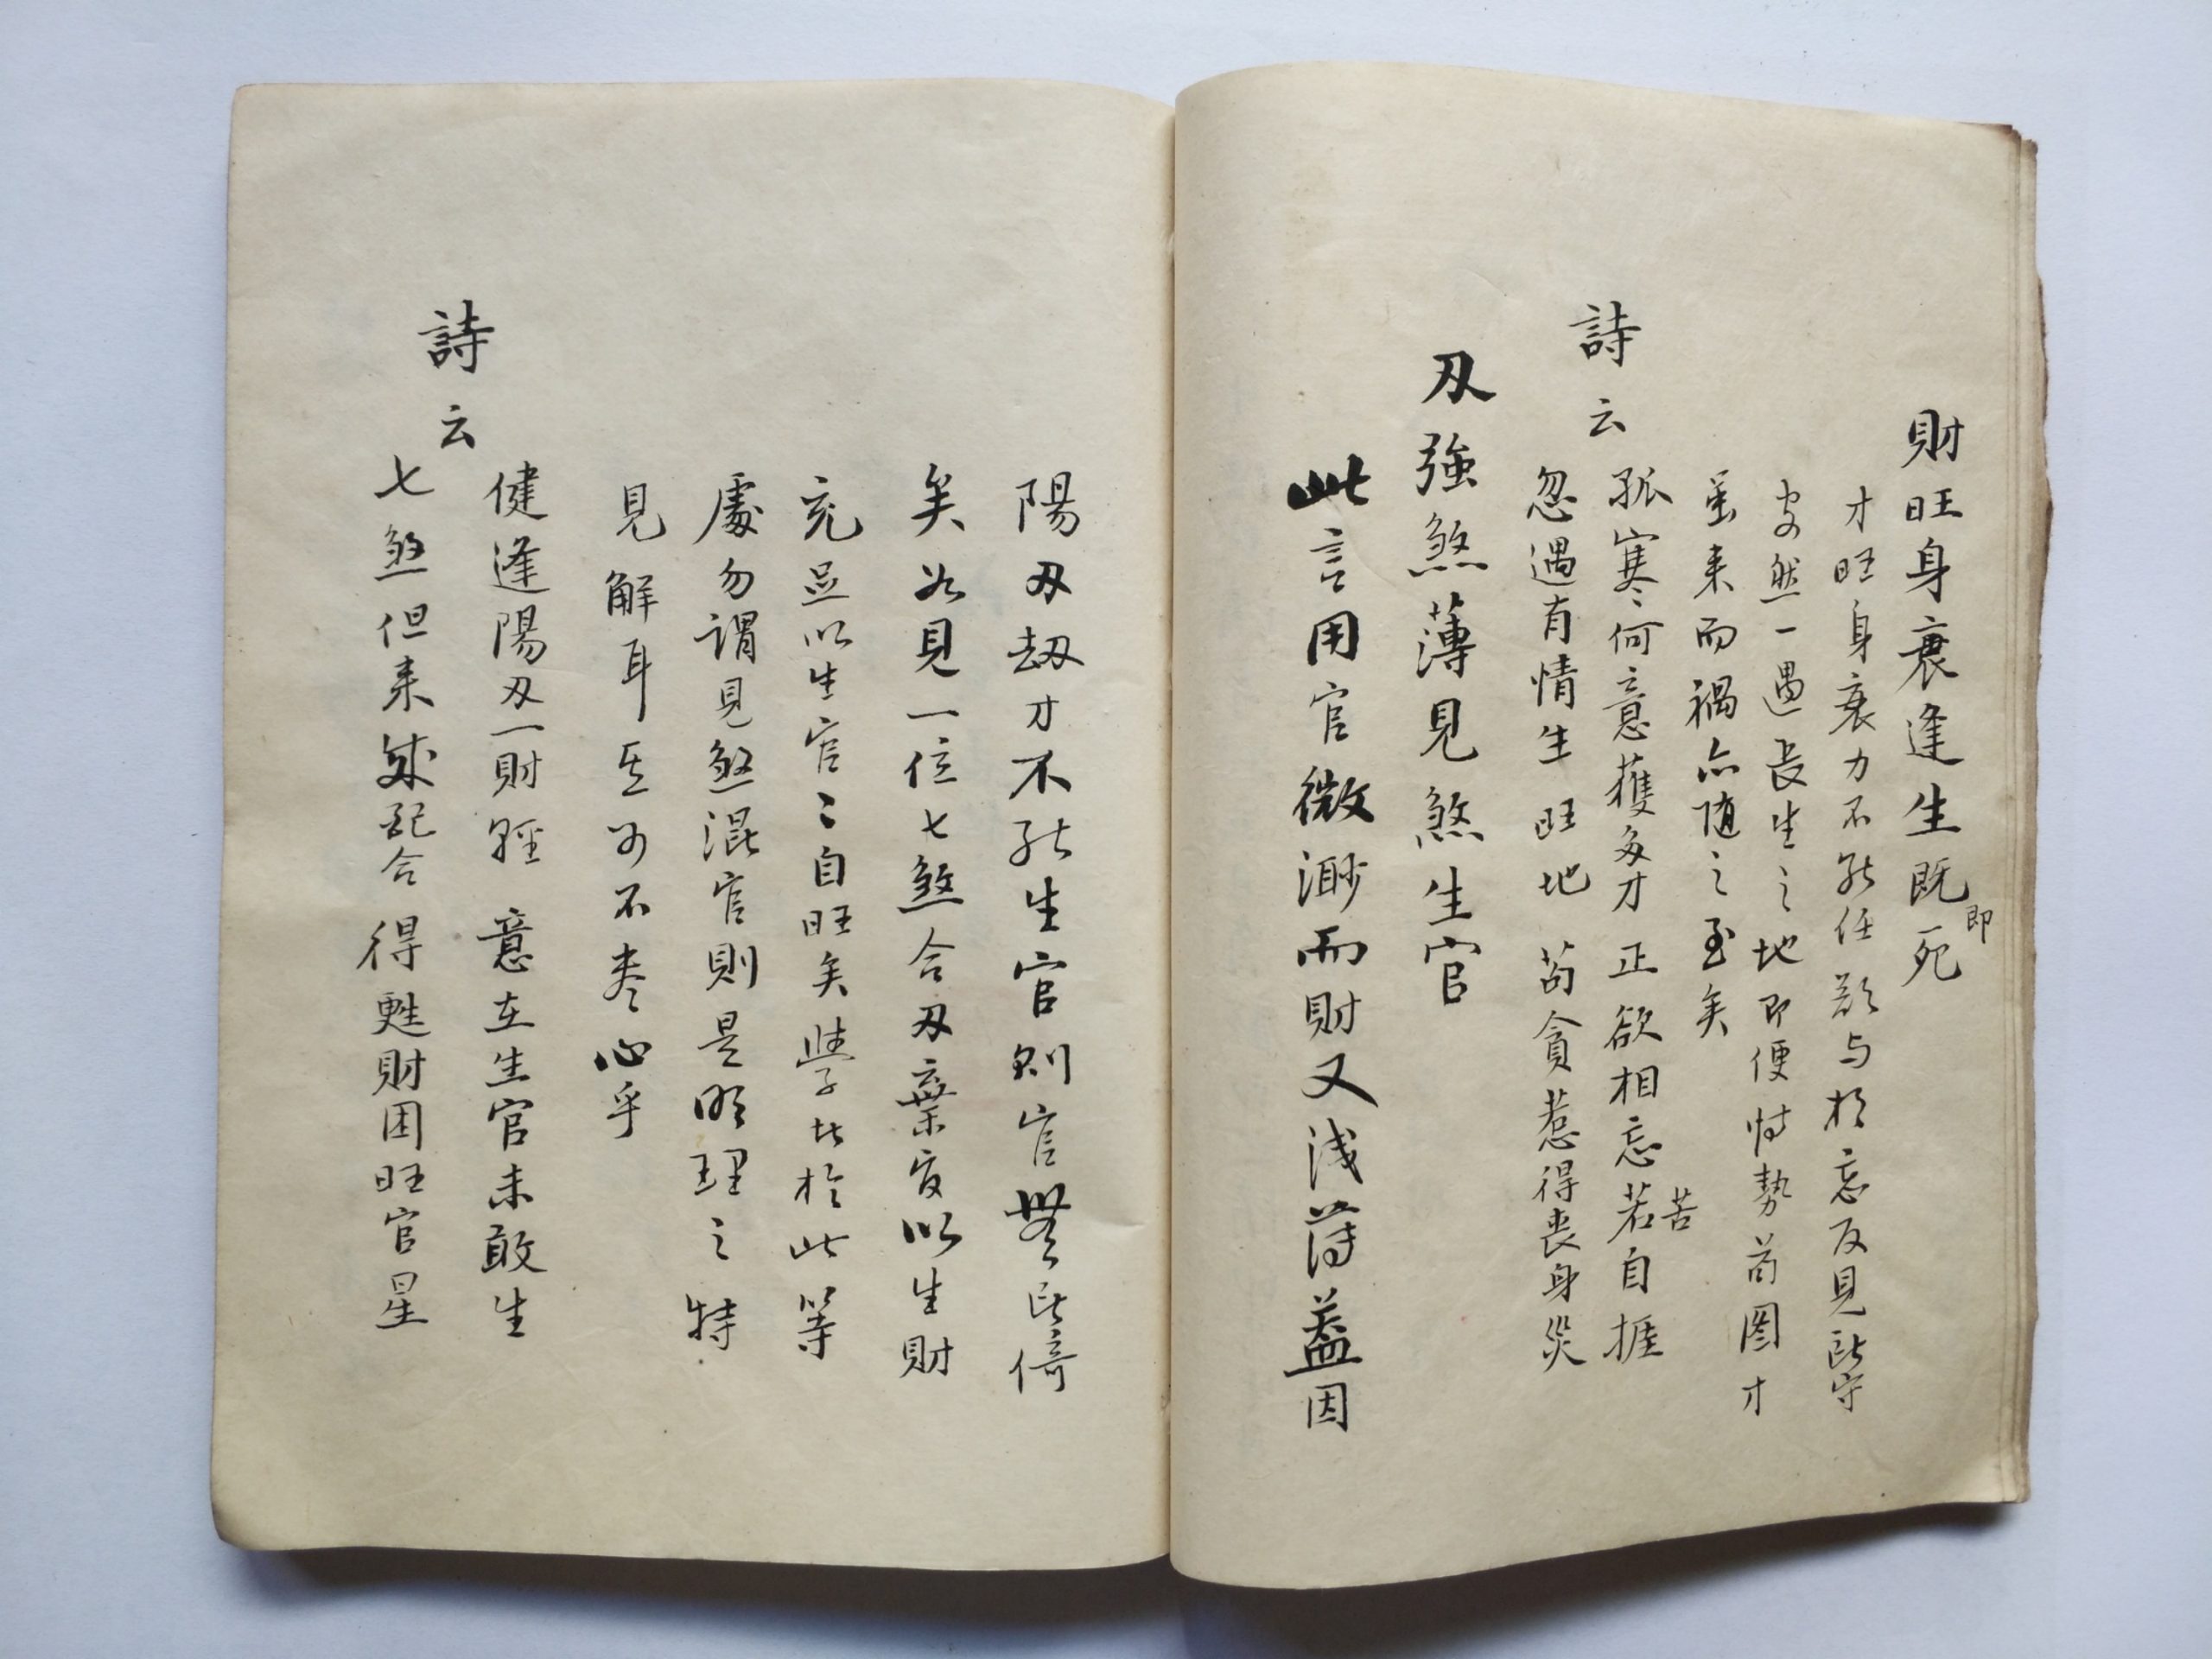 財旺身衰逢生既死
即
才旺身衰力不能任歆与相忘反見此守
安然一遇長生之地即便恃勢苟圖才
虽来而禍亦随之至矣
詩云
孤寒何意獲多才 正欲相忘若自捱
苦
忽遇有情生旺地 苟貪惹得丧身災
刃強煞薄見煞生官
此言用官微渺而財又浅薄蓋因
陽刃刼才不能生官則官無所倚
矣如見一位七煞合刃棄食以生財
充足以生官〻自旺矣學者於此等
處勿謂見煞混官則是明理之特
見解耳豈可不尽心乎
詩云
健逢陽刃一財輕 意在生官未敢生
七煞但来成配合 得甦財困旺官星